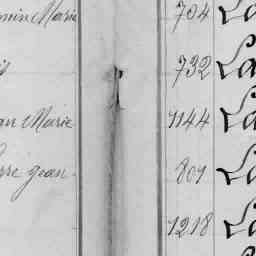 Marie 704 La
732 La
Marie 1144 La
rre jean 807 La
1218 La